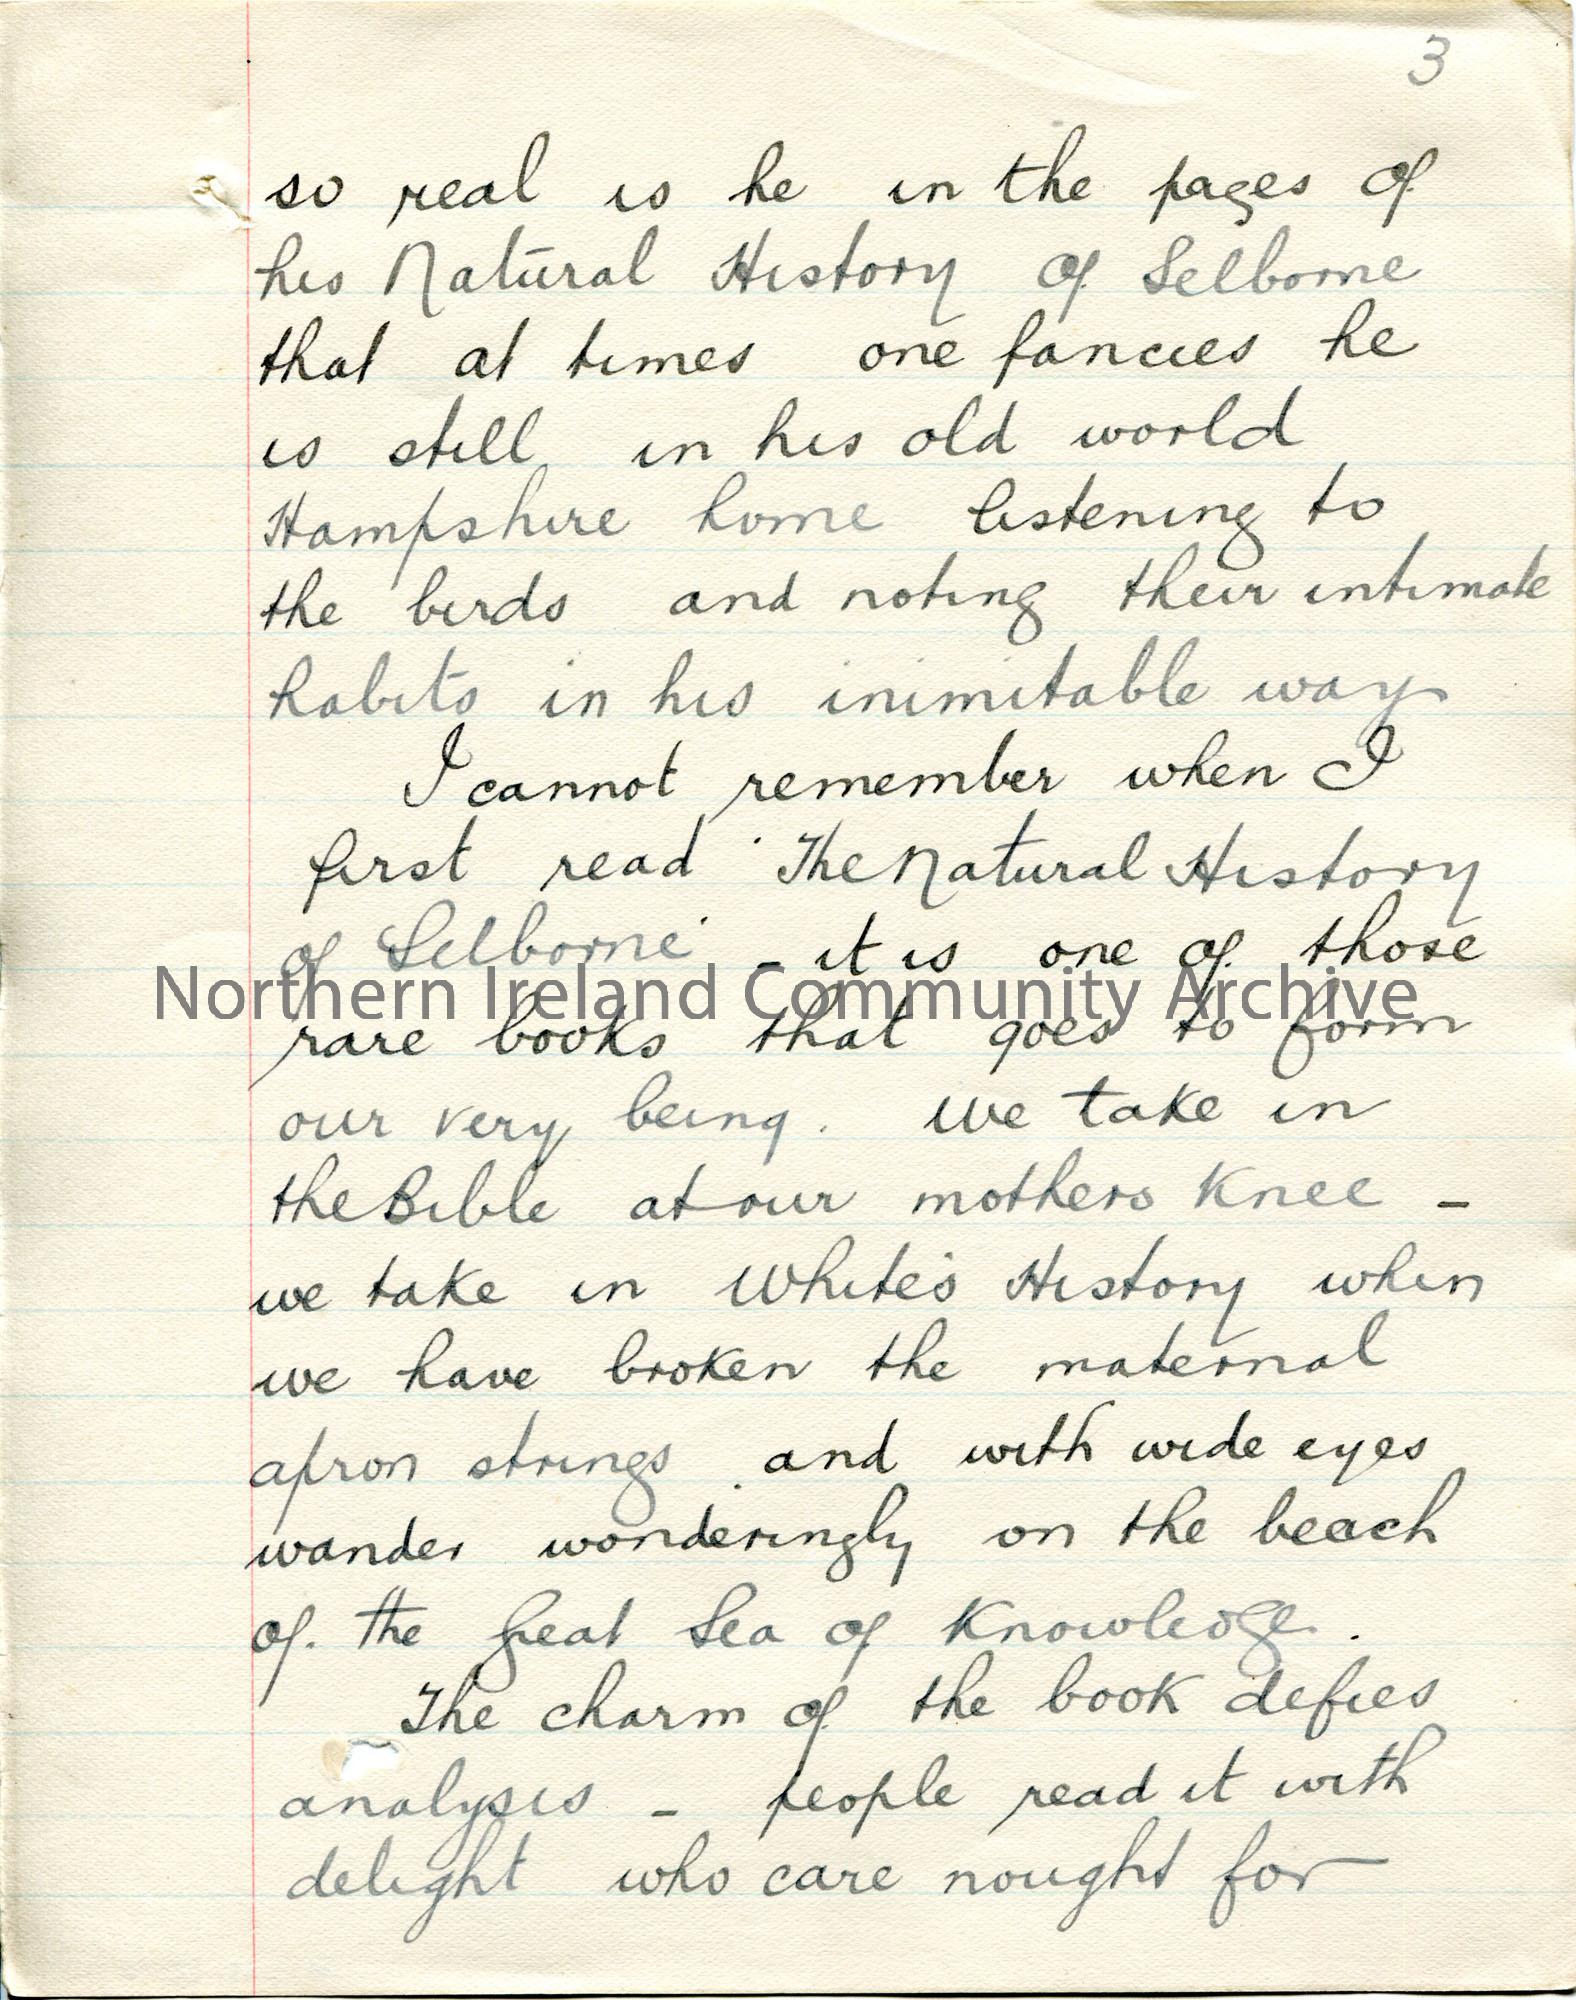 3
so real is he in the pages of
his Natural History of Selborne
that at times one fancies he
is still in his old world
Hampshire home listening to
the birds and noting their intimate
habits in his inimitable way
I cannot remember when I
first read 'The Natural History
of Selborne' - it is one of those
Northern Ireland Community Archive
rare books that goes to form
our very being. We take in
the Bible at our mothers knee -
we take in White's History when
we have broken the maternal
apron strings and with wide eyes
wander wonderingly on the beach
of the Great Sea of Knowledge.
The charm of the book defies
analysis - people read it with
delight who care nought for